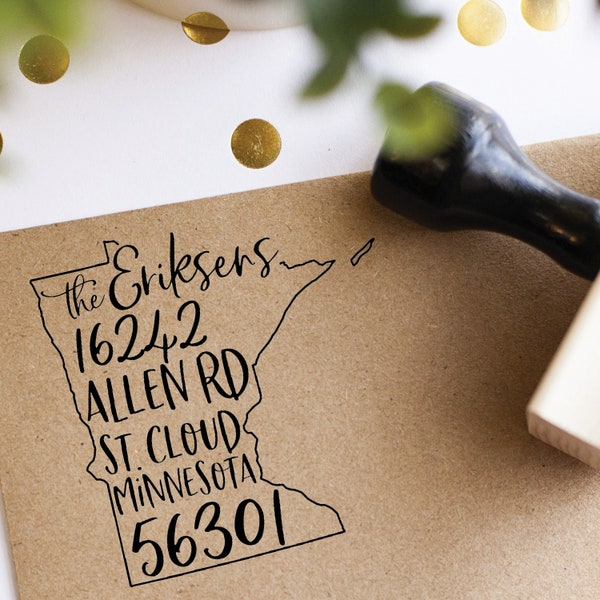 the Eriksens
16242
ALLEN RD
ST. CLOUD
MiNNESOTA
56301